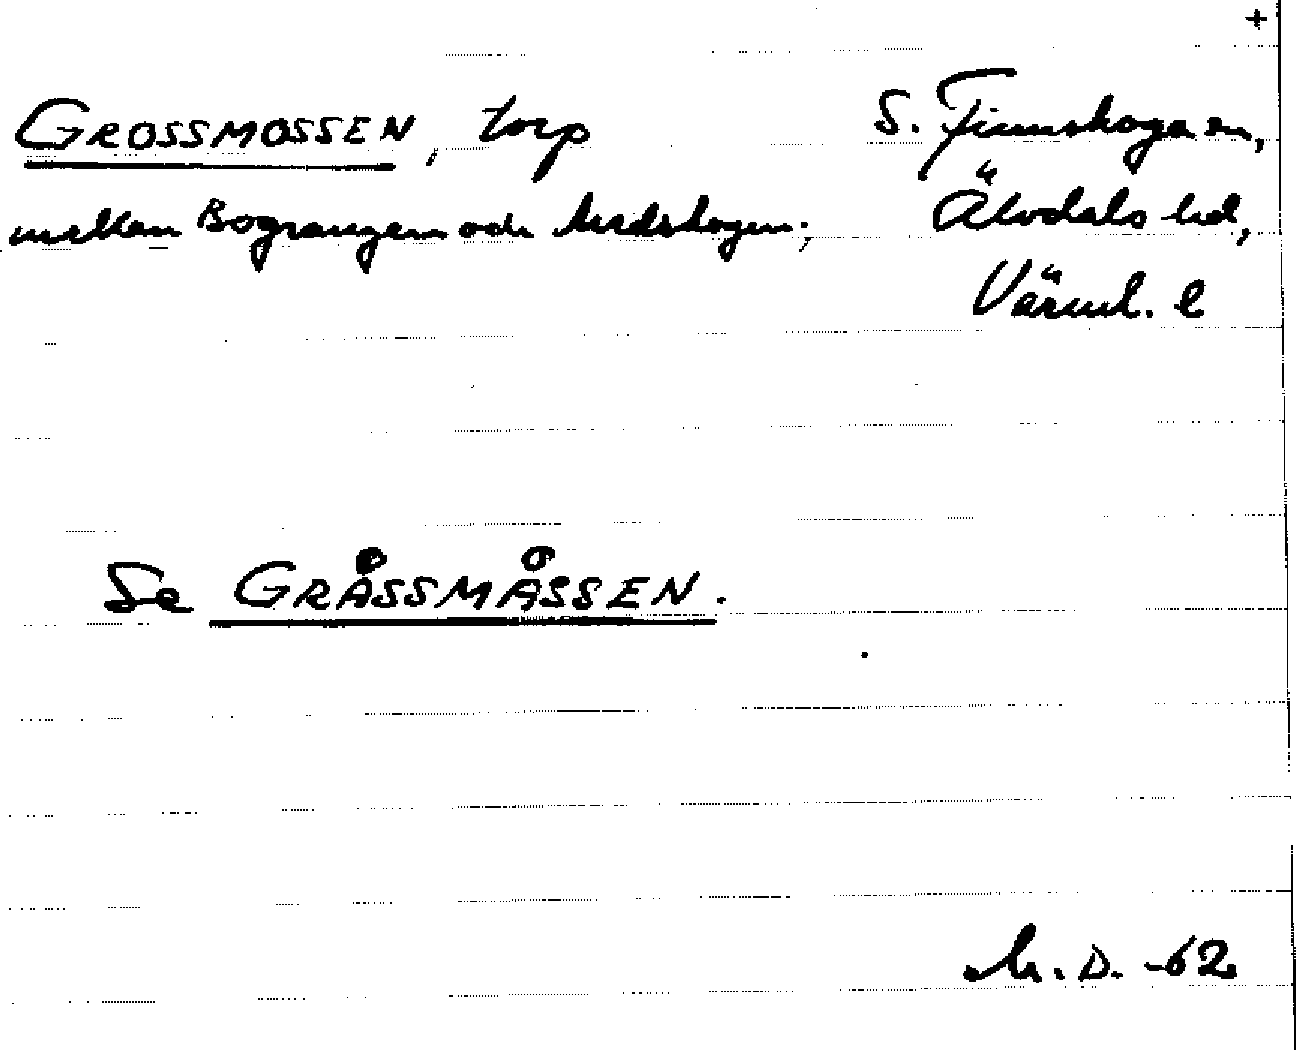 +
GROSSMOSSEN, torp
mellan Bograngen och Medskogen;
S. Finnskoga sn,
Älvdals hd,
Värml. l
Se GRÅSSMÅSSEN.
M. D. -62